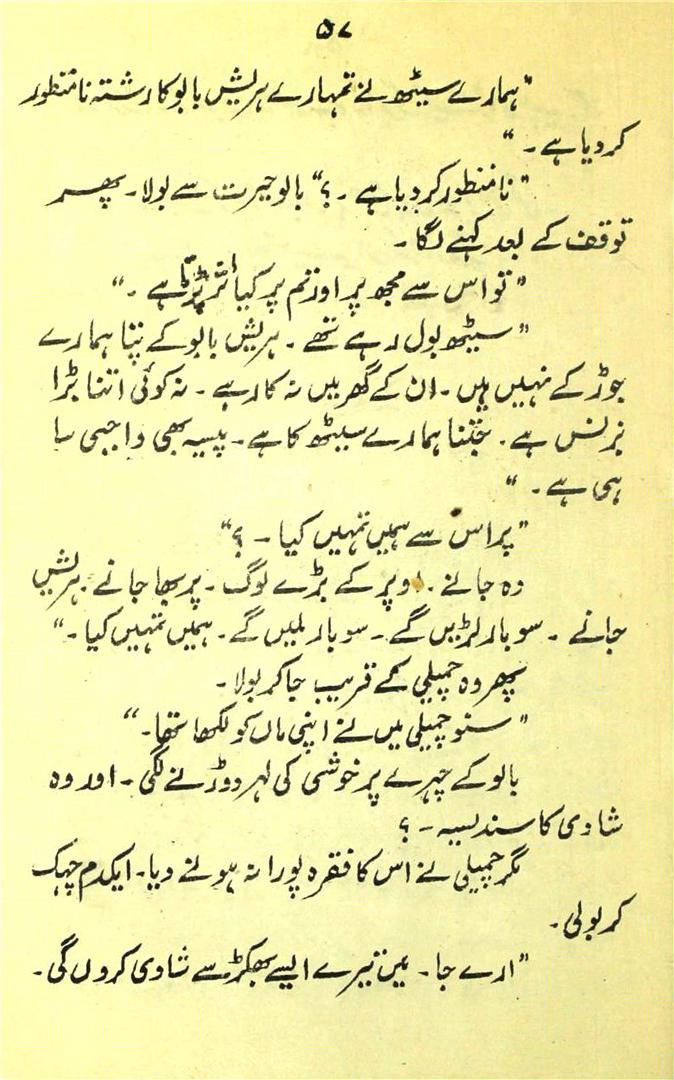 ۵۷
"ہمارے سیٹھ نے تمہارے ہریش بابو کا رشتہ نامنظور
کر دیا ہے۔ "
"نامنظور کر دیا ہے ۔؟" بالو حیرت سے بولا۔ پھر
توقف کے بعد کہنے لگا ۔
"تو اس سے مجھ پر اور تم پر کیا اثر پڑتا ہے ۔"
"سیٹھ بول رہے تھے ۔ ہریش بابو کے پتا ہمارے
جوڑ کے نہیں ہیں ۔ ان کے گھر میں نہ کار ہے ۔ نہ کوئی اتنا بڑا
بزنس ہے ۔ جتنا ہمارے سیٹھ کا ہے ۔ پیسہ بھی واجبی سا
ہی ہے ۔ "
"پر اس سے ہمیں تمہیں کیا ۔ ؟"
وہ جانے ۔ اوپر کے بڑے لوگ ۔ پربھا جانے ۔ ہریش
جانے ۔ سو بار لڑیں گے ۔ سو بار ملیں گے ۔ ہمیں تمہیں کیا ۔"
پھر وہ چمپلی کے قریب جا کر بولا ۔
"سنو چمپلی میں نے اپنی ماں کو لکھا تھا ۔"
بالو کے چہرے پر خوشی کی لہر دوڑنے لگی ۔ اور وہ
شادی کا سندیسہ ۔ ؟
مگر چمپلی نے اس کا فقرہ پورا نہ ہونے دیا ۔ ایکدم چہک
کر بولی ۔
"ارے جا ۔ میں تیرے ایسے بھکڑ سے شادی کروں گی ۔